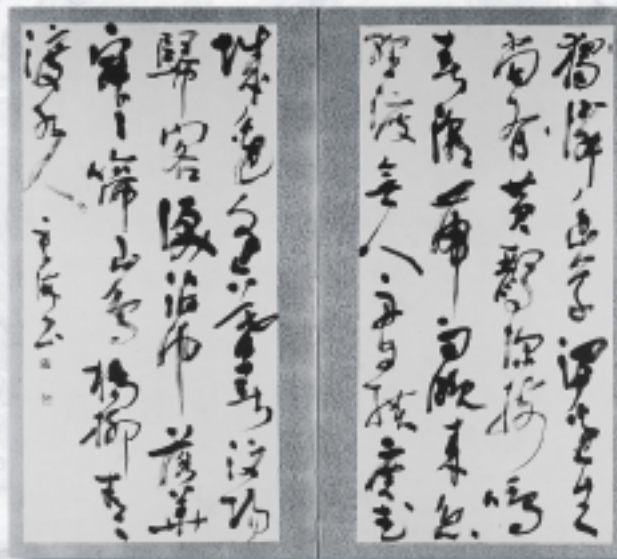 獨憐幽草澗邊生
尚有黄鸝深樹鳴
春潮帶雨晚來急
野渡無人舟自横廣武
城邊逢暮春汶陽
歸客淚沾巾落華
寂々啼山鳥楊柳青々
渡水人